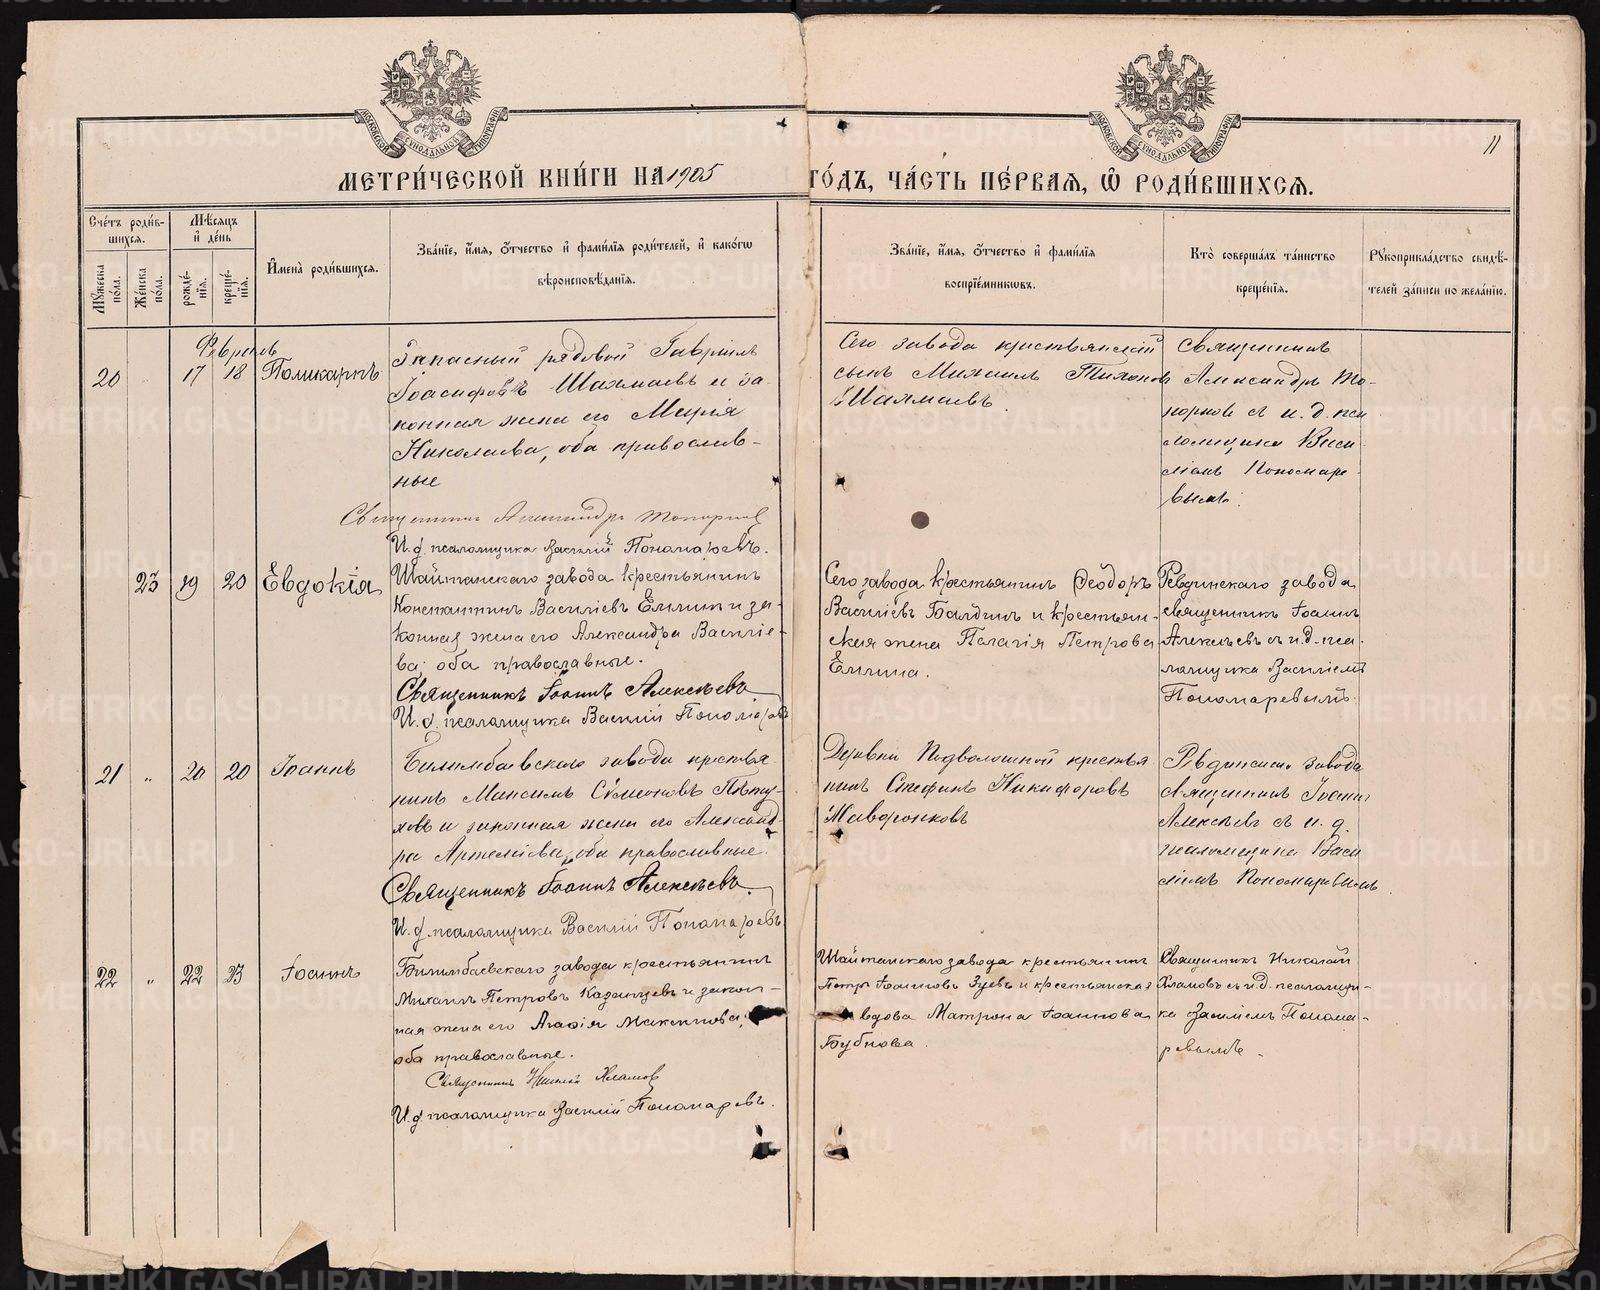 МЕТРИ́ЧЕСКОЙ КНИ́ГИ НА 1905 ГО́ДЪ, ЧА́СТЬ ПЕ́РВАЯ, Ѡ҆ РОДИ́ВШИХСѦ.
11
Сче́тъ роди́в-
шихсѧ.
Мꙋ́жеска по́ла.
Же́нска по́ла.
Мѣ́сѧцъ
и҆ де́нь
рожде́-
нїѧ.
креще́-
нїѧ.
И҆мена̀ роди́вшихсѧ.
Зва́нїе, и҆́мѧ, ѻ҆́тчество и҆ фами́лїѧ роди́телей, и҆ како́гѡ
вѣроисповѣ́данїѧ.
Зва́нїе, и҆́мѧ, ѻ҆́тчество и҆ фами́лїѧ
воспрїе́мниковъ.
Кто̀ соверша́лъ та́инство
креще́нїѧ.
Рꙋкоприкла́дство свидѣ́-
телей за́писи по жела́нїю.
Февраль
20 17 18 Поликарпъ
Запасный рядовой Гавріилъ
Іоасифовъ Шахмаевъ и за-
конная жена его Марія
Николаева, оба православ-
ные
Священникъ Александръ Топорковъ
И. д. псаломщика Василій Пономаревъ.
Сего завода крестьянскій
сынъ Михаилъ Тихоновъ
Шахмаевъ.
Священникъ
Александръ То-
порковъ съ и. д. пса
ломщика Васи
ліемъ Пономаре-
вымъ.
23 19 20 Евдокія
Шайтанскаго завода крестьянинъ
Константинъ Василіевъ Ёлкинъ и за-
конная жена его Александра Василіе-
ва, оба православные.
Священникъ Іоаннъ Алексѣевъ
И. д. псаломщика Василій Пономаревъ
Сего завода крестьянинъ Ѳеодоръ
Василіевъ Балдинъ и крестьян-
ская жена Пелагія Петрова
Ёлкина.
Ревдинскаго завода
священникъ Іоаннъ
Алексѣевъ съ и. д. пса-
ломщика Василіемъ
Пономаревымъ.
21 " 20 20 Іоаннъ
Билимбаевскаго завода крестья
нинъ Максимъ Сѵмеоновъ Пѣту-
ховъ и законная жена его Александ-
ра Артеміева, оба православные.
Священникъ Іоаннъ Алексѣевъ.
И. д. псаломщика Василій Пономаревъ
Деревни Подволошной крестья
нинъ Стефанъ Никифоровъ
Жаворонковъ
Ревдинскаго завода
священникъ Іоаннъ
Алексѣевъ съ и. д.
псаломщика Васи
ліемъ Пономаревымъ.
22 " 22 23 Іоаннъ
Билимбаевскаго завода крестьянинъ
Михаилъ Петровъ Казанцевъ и закон-
ная жена его Агафія Максимова,
оба православные.
Священникъ Николай Хламовъ
И. д. псаломщика Василій Пономаревъ.
Шайтанскаго завода крестьянинъ
Петръ Іоанновъ Зуевъ и крестьянская
вдова Матрона Іоаннова
Бубнова.
Священникъ Николай
Хламовъ съ и. д. псаломщи-
ка Василіемъ Понома-
ревымъ.